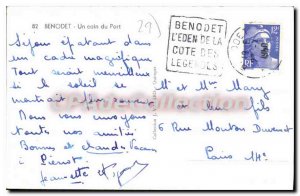 82 BENODET - Un coin du Port
29)
BENODET
L'EDEN DE LA
COTE DES
LEGENDES
12F
RF
Séjour épatant dans
un cadre magnifique
Tout serait merveilleux
si le soleil se
montrait
Nous vous envoyons
toutes nos amitiés
Bonnes et
à Bénod
Jeannette et
M. et Mme Many
et leur fils
6 Rue Mouton Duvernet
Paris 14e